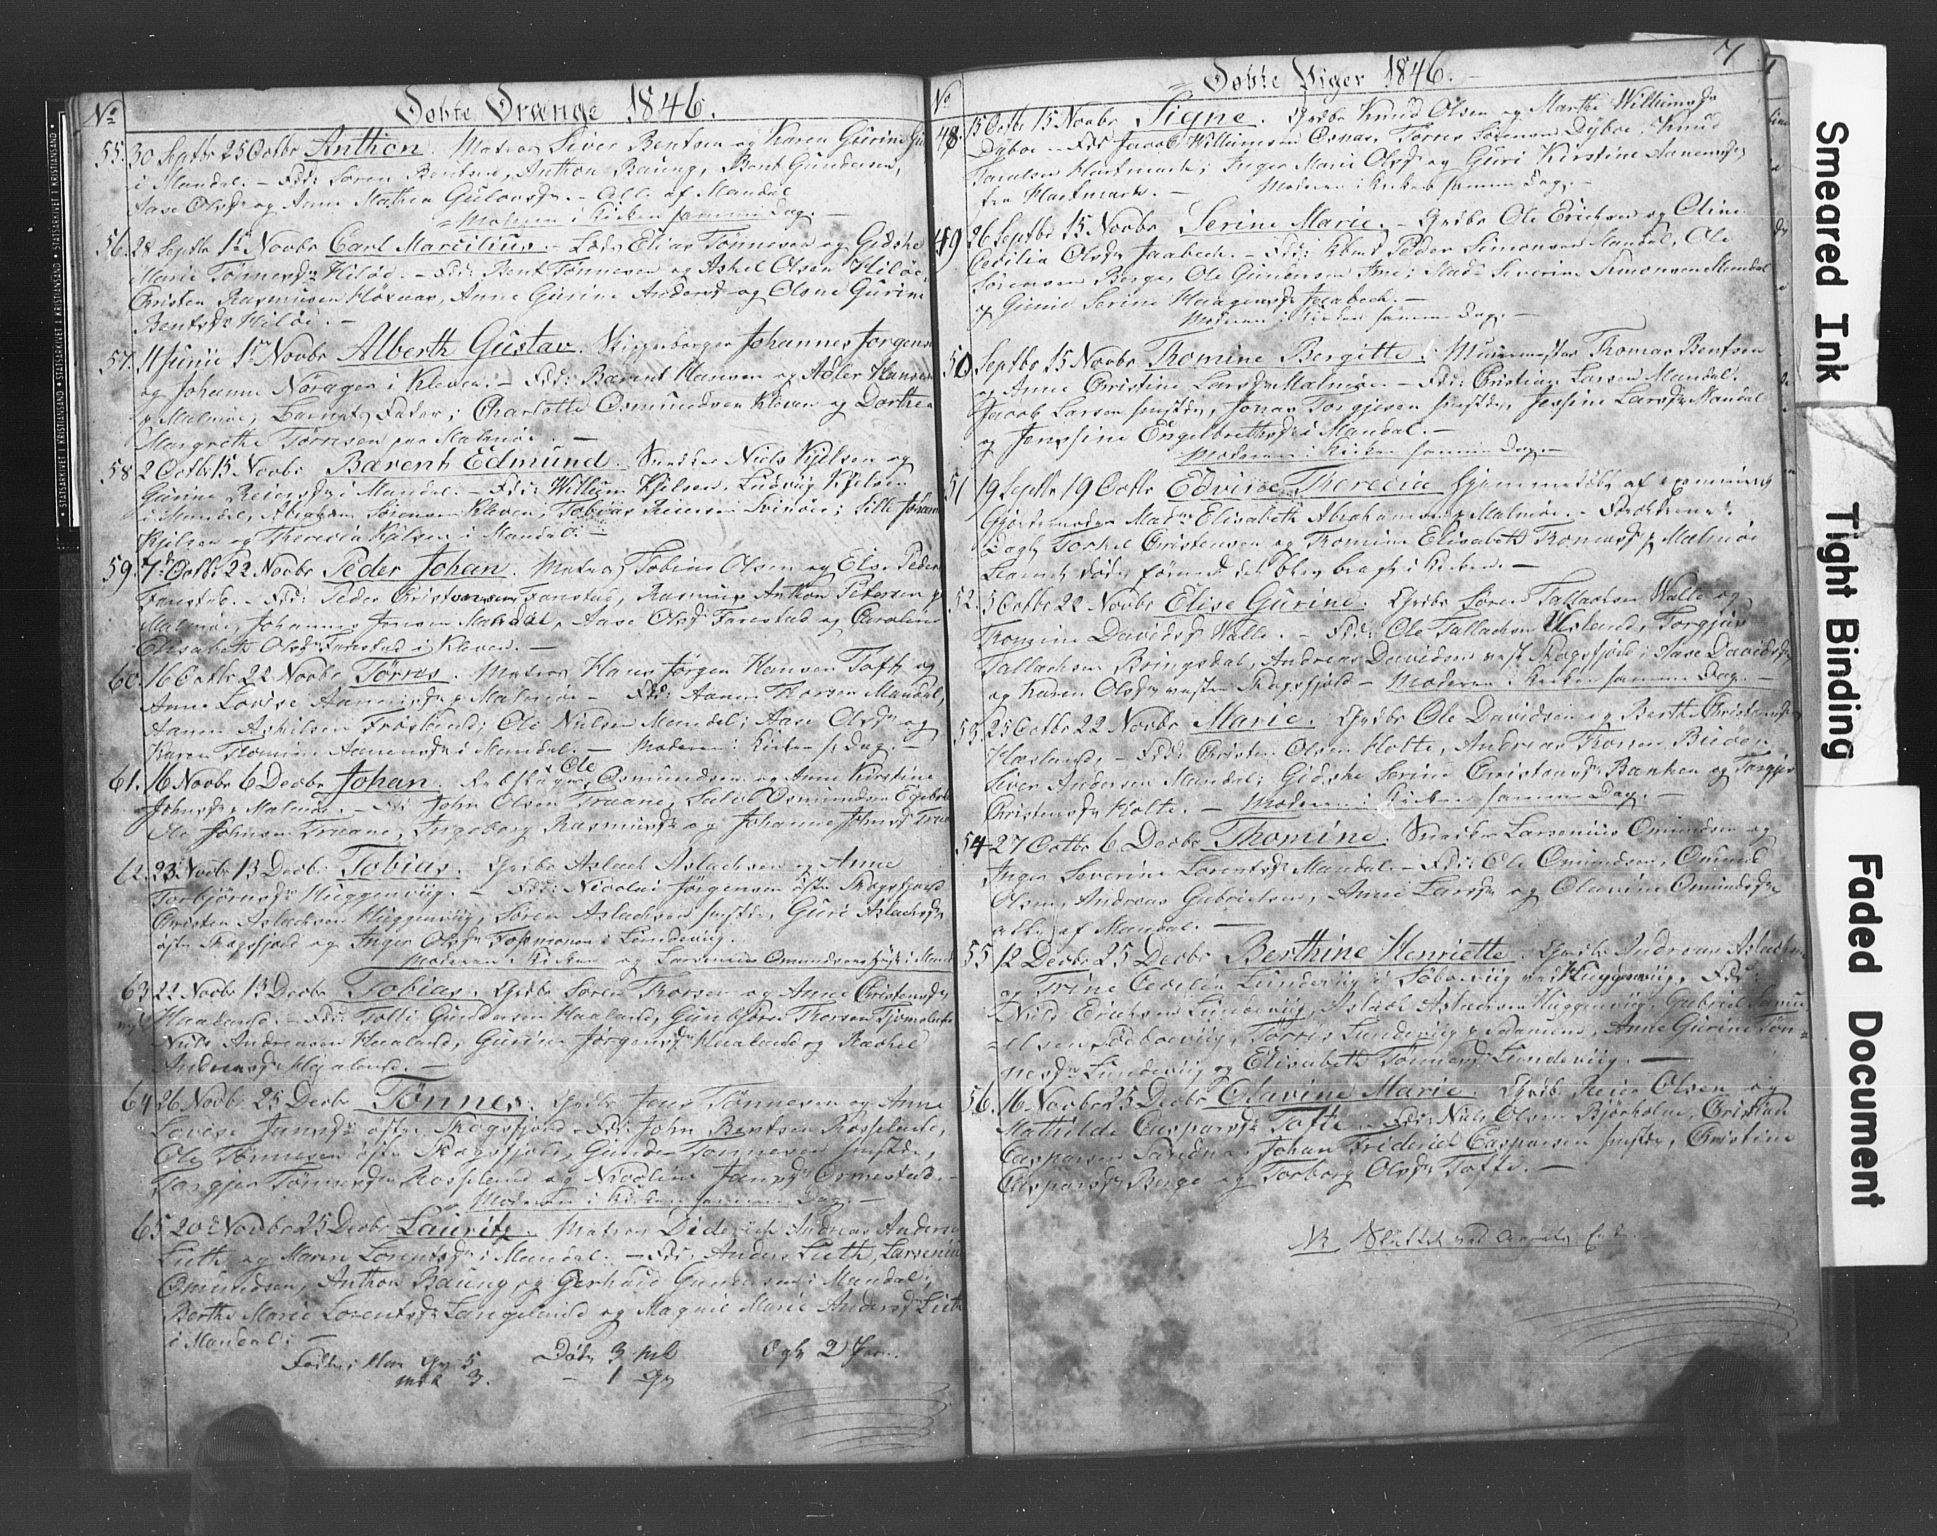 No
Døbte Drænge 1846.
55. 30 Septbr 25 Octbr Anthon. Matros Siver Bentsen og Karen Gurine
i Mandal. – Fdr: Sören Bentsen, Anthon Baung, Bent Gundersen,
Aase Olsdr og Anne Mathea – Alle af Mandal
Moderen i Kirken samme Dag. –
56. 28 Septbr 1st Novbr Carl Marcilius. – Lods Elias Tönnesen og Gidske
Marie Tönnesdr Hiløe. – Fdr: Bent Tönnesen og Askel Olsen Hiløe,
Christen Rasmusen Anne Gurine Andersdr og Olene Gurine
Bentsdr Hiløe. –
57. 11 Junii 1st Novbr Alberth Gustav. Johannes Jörgensen
og Johanne Nörager i Kleven. – Fdr: Barent Hansen og Adler Hansen
p Malmöe, Barnets Fader; Charlotte Osmundsen Kleven og Dorthea
Margrethe Törresen paa Malmöe. –
58. 2 Octbr 15 Novbr Barent Edmund. Snedker Niels Kjelsen og
Gurine Reiersdr i Mandal. – Fdr: Willum Kjelsen, Ludvig Kjelsen
i Mandal, Abraham Sörensen Kleven, Tobias Reiersen Svinöer; Sille Johanne
Kjelsen og Theresia Kjelsen i Mandal. –
59. 7 Octbr 22 Novbr Peder Johan. Matros Tobias Olsen og Else Peders
Farestad. – Fdr: Peder Christensen Farestad, Rasmus Anthon Petersen p
Malmöe, Johannes Jensen Mandal, Aase Olsdr Farestad og Caroline
Elisabeth Olsdr Farestad i Kleven. –
60. 16 Octbr 22 Novbr Törres. Matros Hans Jörgen Hansen Toft og
Anne Lovise Aanensdr p Malmöe – Fdr: Aanen Thorsen Mandal,
Aanen Askilsen Frösland; Ole Nielsen Mandal; Aase Olsdr og
Karen Thomine Aanensdr i Mandal. – Moderen i Kirken s. Dag. –
61. 16 Novbr 6 Decbr Johan. Ole Osmundsen og Anne Kirstine
Johnsdr p Malmöe. – Fdr John Olsen Traane, Osmundsen
Ole Johnsen Traane, Ingeborg Rasmusdr og Johanne Johnsdr
62. 23 Novbr 13 Decbr Tobias. Grdbr Aslach Aslachsen og Anne
Torbjörnsdr Huggenviig. – Fdr: Nicolai Jörgensen östre Skogsfjord
Christen Aslachsen Huggenviig, Sören Aslachsen smstdr, Guri Aslachsdr
östre Skogsfjeld og Inger Olsdr i Lundeviig.
Moderen i Kirken og Larsenius Omundsen i Mandal
63. 22 Novbr 13 Decbr Tobias. Grdbr Sören Thorsen og Anne Christensdr
Haaland. – Fdr: Tolli Gundersen Haaland, Gunbjörn Thorsen
Niels Andreassen Haaland, Gurine Jörgensdr Haaland og Rachel
Andreasdr Haaland. –
64. 26 Novbr 25 Decbr Tönnes. Grdbr Jens Tönnesen og Anne
Lovise Jansdr östre Skogsfjord – Fdr: John Bentsen Rosseland,
Ole Tönnesen östre Skogsfjeld, Gunder Tönnesen smstdr,
Torgjer Tönnesdr Rosseland og Nicoline Jansdr Ormestad. –
Moderen i Kirken samme Dag. –
65. 20 Novbr 25 Decbr Lauritz. Matros Diderich Andreas Andersen
Lieth og Maren Lorentsdr i Mandal. – Fdr: Anders Lieth, Larsenius
Omundsen, Anthon Baung, og Gerhard Gundersen i Mandal;
Berthe Marie Lorentsdr Langeland og Magnil Marie Andersdr Lieth
i Mandal. –
3.
Døde 3 mk
– 1 Qv
Ogs 2
No
Døbte Piger 1846.
7
48. 15 Octbr 15 Novbr Signe. Grdbr Knud Olsen og Marthe Willumsdr
Dyboe – Fdr Jacob Willumsen Osnæs, Törres Sörensen Dyboe; Knud
Taralsen Hartmark; Inger Marie Olsdr og Guri Kirstine Aanensdr
fra Hartmark. – Moderen i Kirken samme Dag. –
49. 26 Septbr 15 Novbr Serine Marie. – Grdbr Ole Erichsen og Oline
Cecilia Olsdr Jaabæck. – Fdr: Peder Simonsen Mandal, Ole
Sörensen Berge, Ole Gundersen Ime; Mad. Severine Simonsen Mandal
og Gunild Serine Haagensdr Jaabeck. –
Moderen i Kirken samme Dag. –
50. Septbr 15 Novbr Thomine Bergitte. Muurmester Thomas Bentsen
og Anne Christine Larsdr Malmöe. – Fdr: Christian Larsen Mandal.
Jacob Larsen smstdr, Jonas Torgjesen smstdr, Jessine Larsdr Mandal
og Jensine Engelbrethsdr i Mandal. –
Moderen i Kirken samme Dag. –
51. 19 Septbr 19 Octbr Edvise Therecie hjemmedöbt af examineret
Gjordemoder Mad. Elisabeth Abrahamsen p Malmöe. – Forældrene:
Torkel Christensen og Thomine Elisabeth Thomasdr p Malmöe
Barnet döde förend det blev bragt i Kirken. –
52. 5 Octbr 22 Novbr Elise Gurine. Grdbr Sören Tallachsen Walle og
Thomine Davidsdr Walle. – Fdr: Ole Tallachsen Usland, Torgjus
Tallachsen Bringsdal, Andreas Davidsen vest Skogsfjeld; Aase Davidsdr
og Karen Olsdr vestre Skogsfjeld – Moderen i Kirken samme Dag. –
53. 25 Octbr 22 Novbr Marie. Grdbr Ole Davidsen og Berthe Christensdr
Haaland. – Fdr: Christen Olsen Holte, Andreas Thorsen
Siver Andersen Mandal; Gidske Serine Christensdr Banken og Torgjer
Christensdr Holte. – Moderen i Kirken samme Dag. –
54. 27 Octbr 6 Decbr Thomine. Snedker Larsenius Omundsen og
Inger Severine Lorentsdr Mandal – Fdr: Ole Omundsen, Omund
Olsen, Andreas Gabrielsen, Anne Larsdr og Olavine Omundsdr
alle af Mandal. –
55. 12 Decbr 25 Decbr Berthine Henriette. Grdbr Andreas Aslachsen
og Trine Cecilia Lundeviig i Huggenviig. Fdr:
Nils Erichsen Lundeviig, Aslach Aslachsen Huggenviig, Gabriel
Törres Lundeviig Anne Gurine Tön-
nesdr Lundeviig og Elisabeth Tönnesdr Lundeviig. –
56. 16 Novbr 25 Decbr Olavine Marie. Grdbr Reier Olsen og
Mathilde Caspersdr Tofte – Fdr: Niels Olsen Björholm, Christian
Caspersen Sandnæs, Johan Frederich Caspersen smstdr, Christine
Caspersdr Berge og Torborg Olsdr Tofte. –
Smeared Ink
Tight Binding
Faded Document
STATSARKIVET I KRISTIANSAND • STATSARKIVET I KRISTIANSAND • STATSARKIVET I KRISTIANSAND